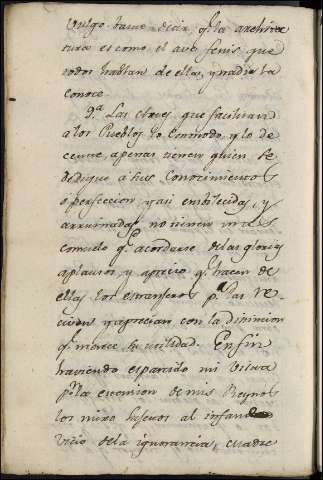 vulgo hacer decir q.e la architec
tura es como el ave fenis que
todos hablan de ella, y nadie la
conoce.
9.a Las claves, que facilitan
a los Pueblos lo Commodo, y lo de
cente, apenas tienen quien se
dedique a sus Conocimientos
o perfeccion, y asi embilecidas, y
arruinadas no tienen mas
consuelo q.e acordarse de las glorias
aplausos, y aprecio q.e hacen de
ellas los estranjeros p.a las re-
civen y aprecian con la distincion
q.e merece su utilidad. En fin
haviendo esparcido mi vista
p.r la extension de mis Reynos
los miro sugetos al infame
vicio de la ignorancia, madre